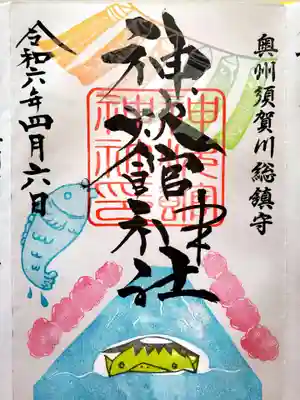 奥州須賀川総鎮守
神炊館神社
令和六年四月六日